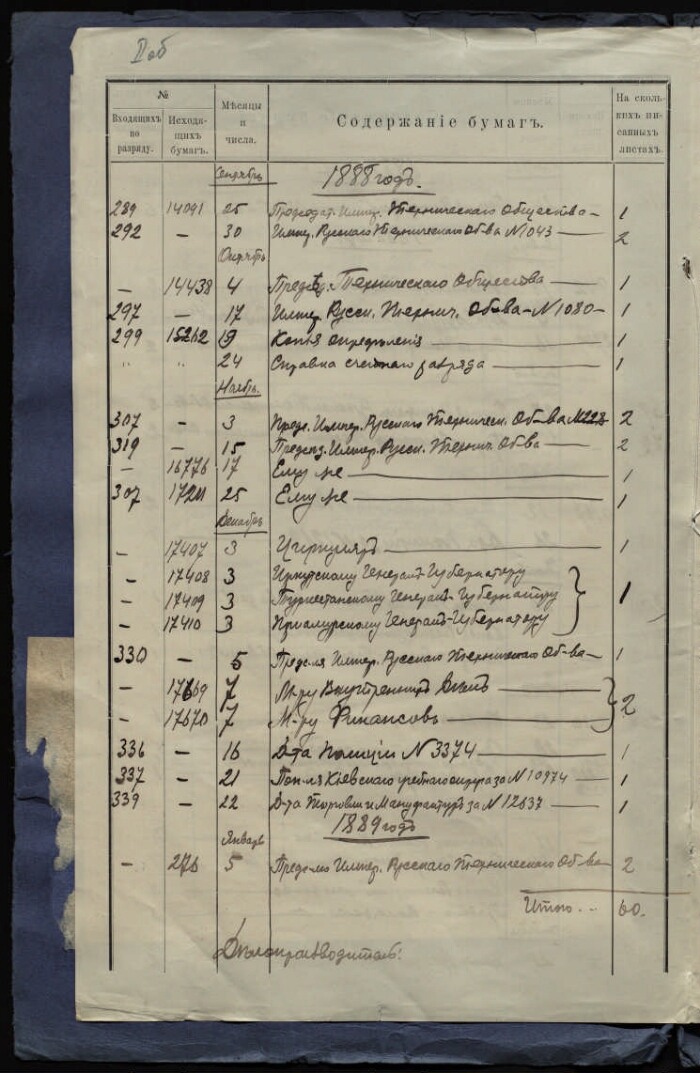 II об
№
Входящихъ по разряду.
Исходящихъ бумагъ.
Мѣсяцы и числа.
Содержаніе бумагъ.
На сколькихъ писанныхъ листахъ.
Сентябрь 1888 годъ.
289 14091 25 Председат. Импер. Техническаго Общества — 1
292 — 30 Импер. Русскаго Техническаго Об-ва № 1043 — 2
Октябрь
— 14438 4 Предсѣд. Техническаго Общества — 1
297 — 17 Импер. Русск. Технич. Об-ва — № 1080 — 1
299 15262 19 Копія опредѣленія — 1
" " 24 Справка счетнаго разряда — 1
Ноябрь.
307 — 3 Предс. Импер. Русскаго Техническ. Об-ва 2
319 — 15 Предсѣд. Импер. Русск. Технич. Об-ва — 2
— 16776 17 Ему же — 1
307 17211 25 Ему же — 1
Декабрь
— 17407 3 Циркуляръ — 1
— 17408 3 Иркутскому Генералъ-Губернатору
— 17409 3 Туркестанскому Генералъ-Губернатору 1
— 17410 3 Приамурскому Генералъ-Губернатору
330 — 5 Предс-ля Импер. Русскаго Техническаго Об-ва — 1
— 17669 7 М-ру Внутреннихъ Дѣлъ —
— 17670 7 М-ру Финансовъ — 2
336 — 16 Д-та Полиціи № 3374 — 1
337 — 21 Поп-ля Кіевскаго учебнаго округа за № 10974 — 1
339 — 22 Д-та Торговли и Мануфактуръ за № 12637 — 1
1889 годъ
Январь
— 276 5 Предс-лю Импер. Русскаго Техническаго Об-ва 2
Итого .. 60.
Дѣлопроизводитель: